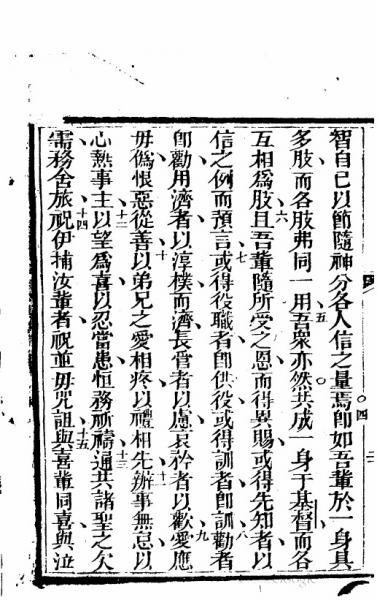 智自已以節隨神分各人信之量焉卽如吾輩於一身具
多肢而各肢弗同一用吾衆亦然共成一身于基督而各
互相爲肢且吾輩隨所受之恩而得異賜或得先知者以
信之例而預言或得役職者卽供役或得訓者卽訓勸者
卽勸用濟者以淳樸而濟長管者以慮哀矜者以歡愛應
毋僞恨惡從善以弟兄之愛相疼以禮相先辦事無怠以
心熱事主以望爲喜以忍當患恒務祈禱通共諸聖之欠
需務舍旅祝伊捕汝輩者祝並毋咒詛與喜輩同喜與泣